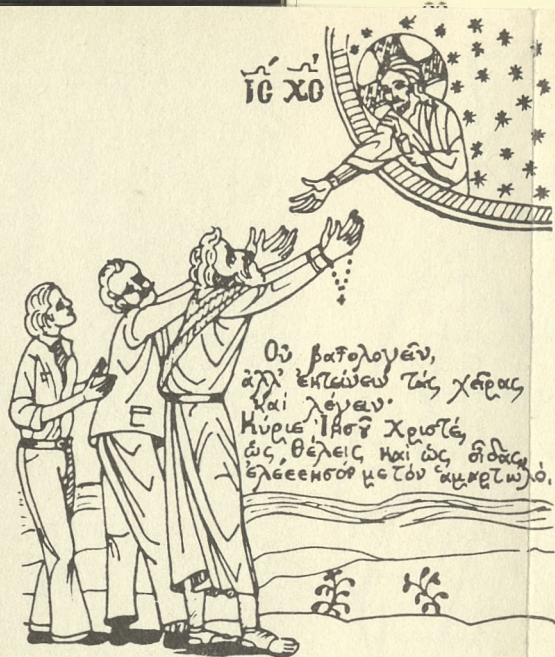 ΙϹ ΧϹ
Οὐ βατολογεῖν,
ἀλλ' ἐκτείνειν τάς χεῖρας
καί λέγειν·
Κύριε Ἰησοῦ Χριστέ,
ὡς θέλεις καί ὡς οἶδας,
ἐλεεησόν με τόν ἁμαρτωλό.